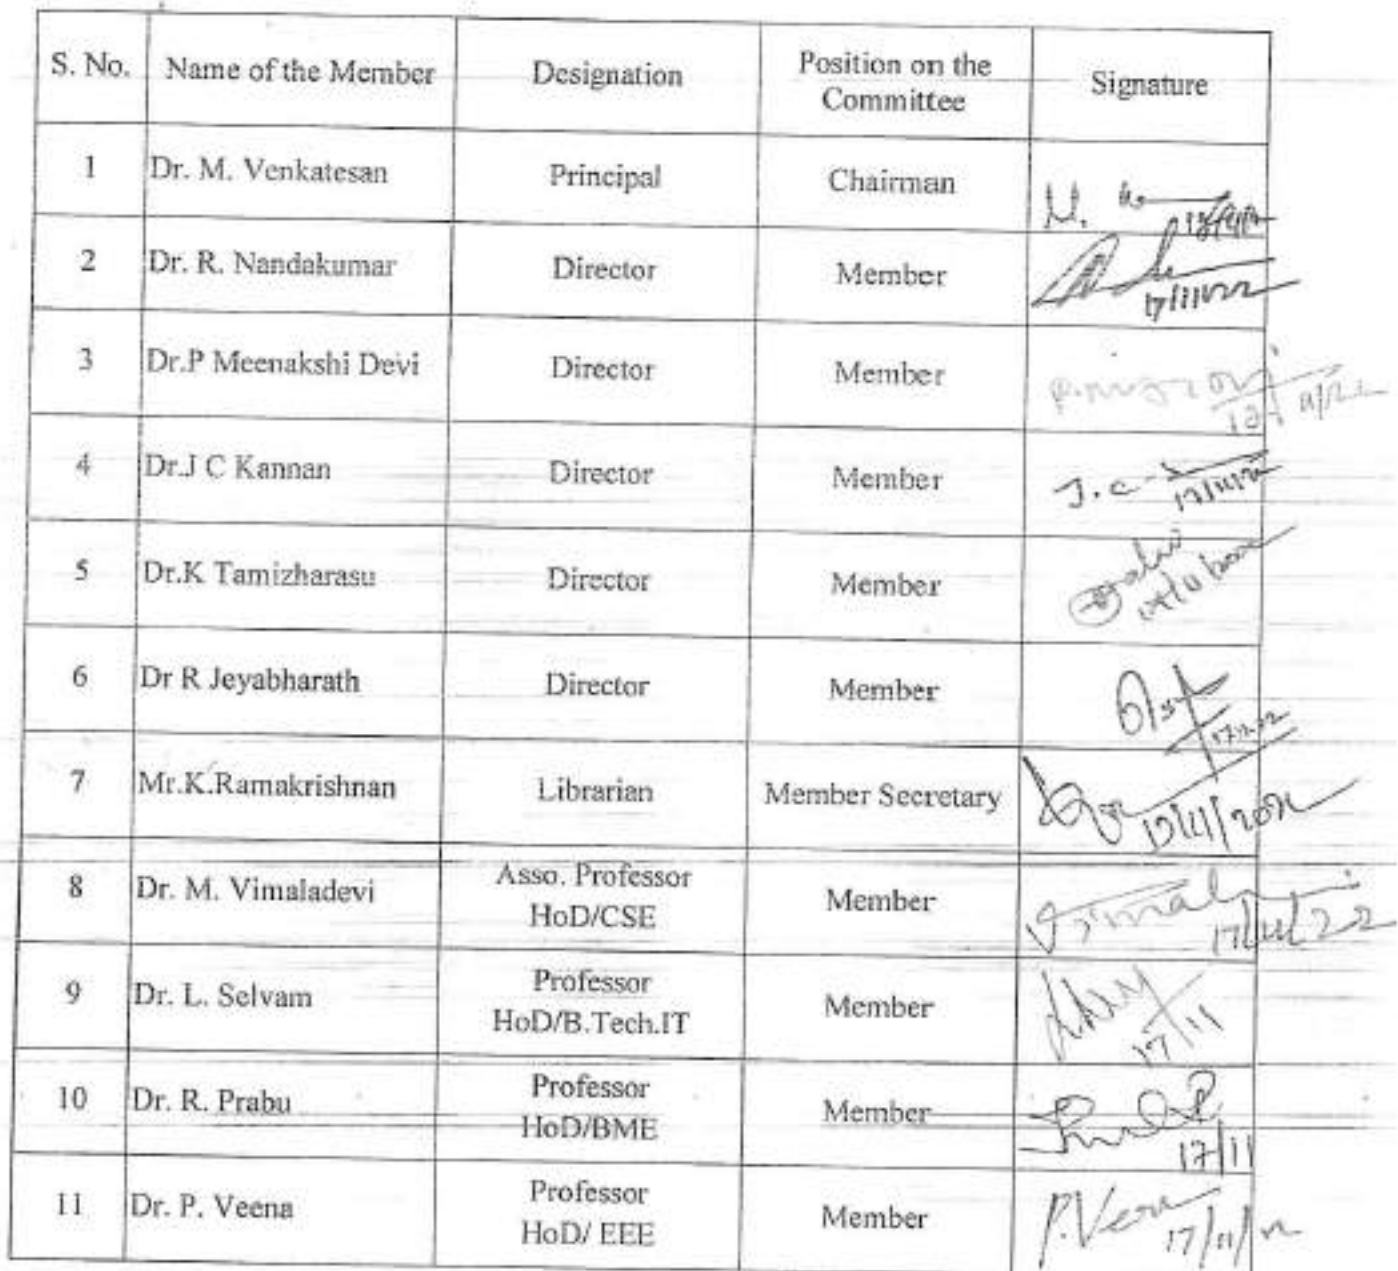 S. No. Name of the Member Designation Position on the Committee Signature
1 Dr. M. Venkatesan Principal Chairman M.
2 Dr. R. Nandakumar Director Member 17/11/22
3 Dr.P Meenakshi Devi Director Member
4 Dr.J C Kannan Director Member J.C
5 Dr.K Tamizharasu Director Member
6 Dr R Jeyabharath Director Member
7 Mr.K.Ramakrishnan Librarian Member Secretary
8 Dr. M. Vimaladevi Asso. Professor HoD/CSE Member 17/11/22
9 Dr. L. Selvam Professor HoD/B.Tech.IT Member 17/11
10 Dr. R. Prabu Professor HoD/BME Member 17/11
11 Dr. P. Veena Professor HoD/ EEE Member P.Veena 17/11/22